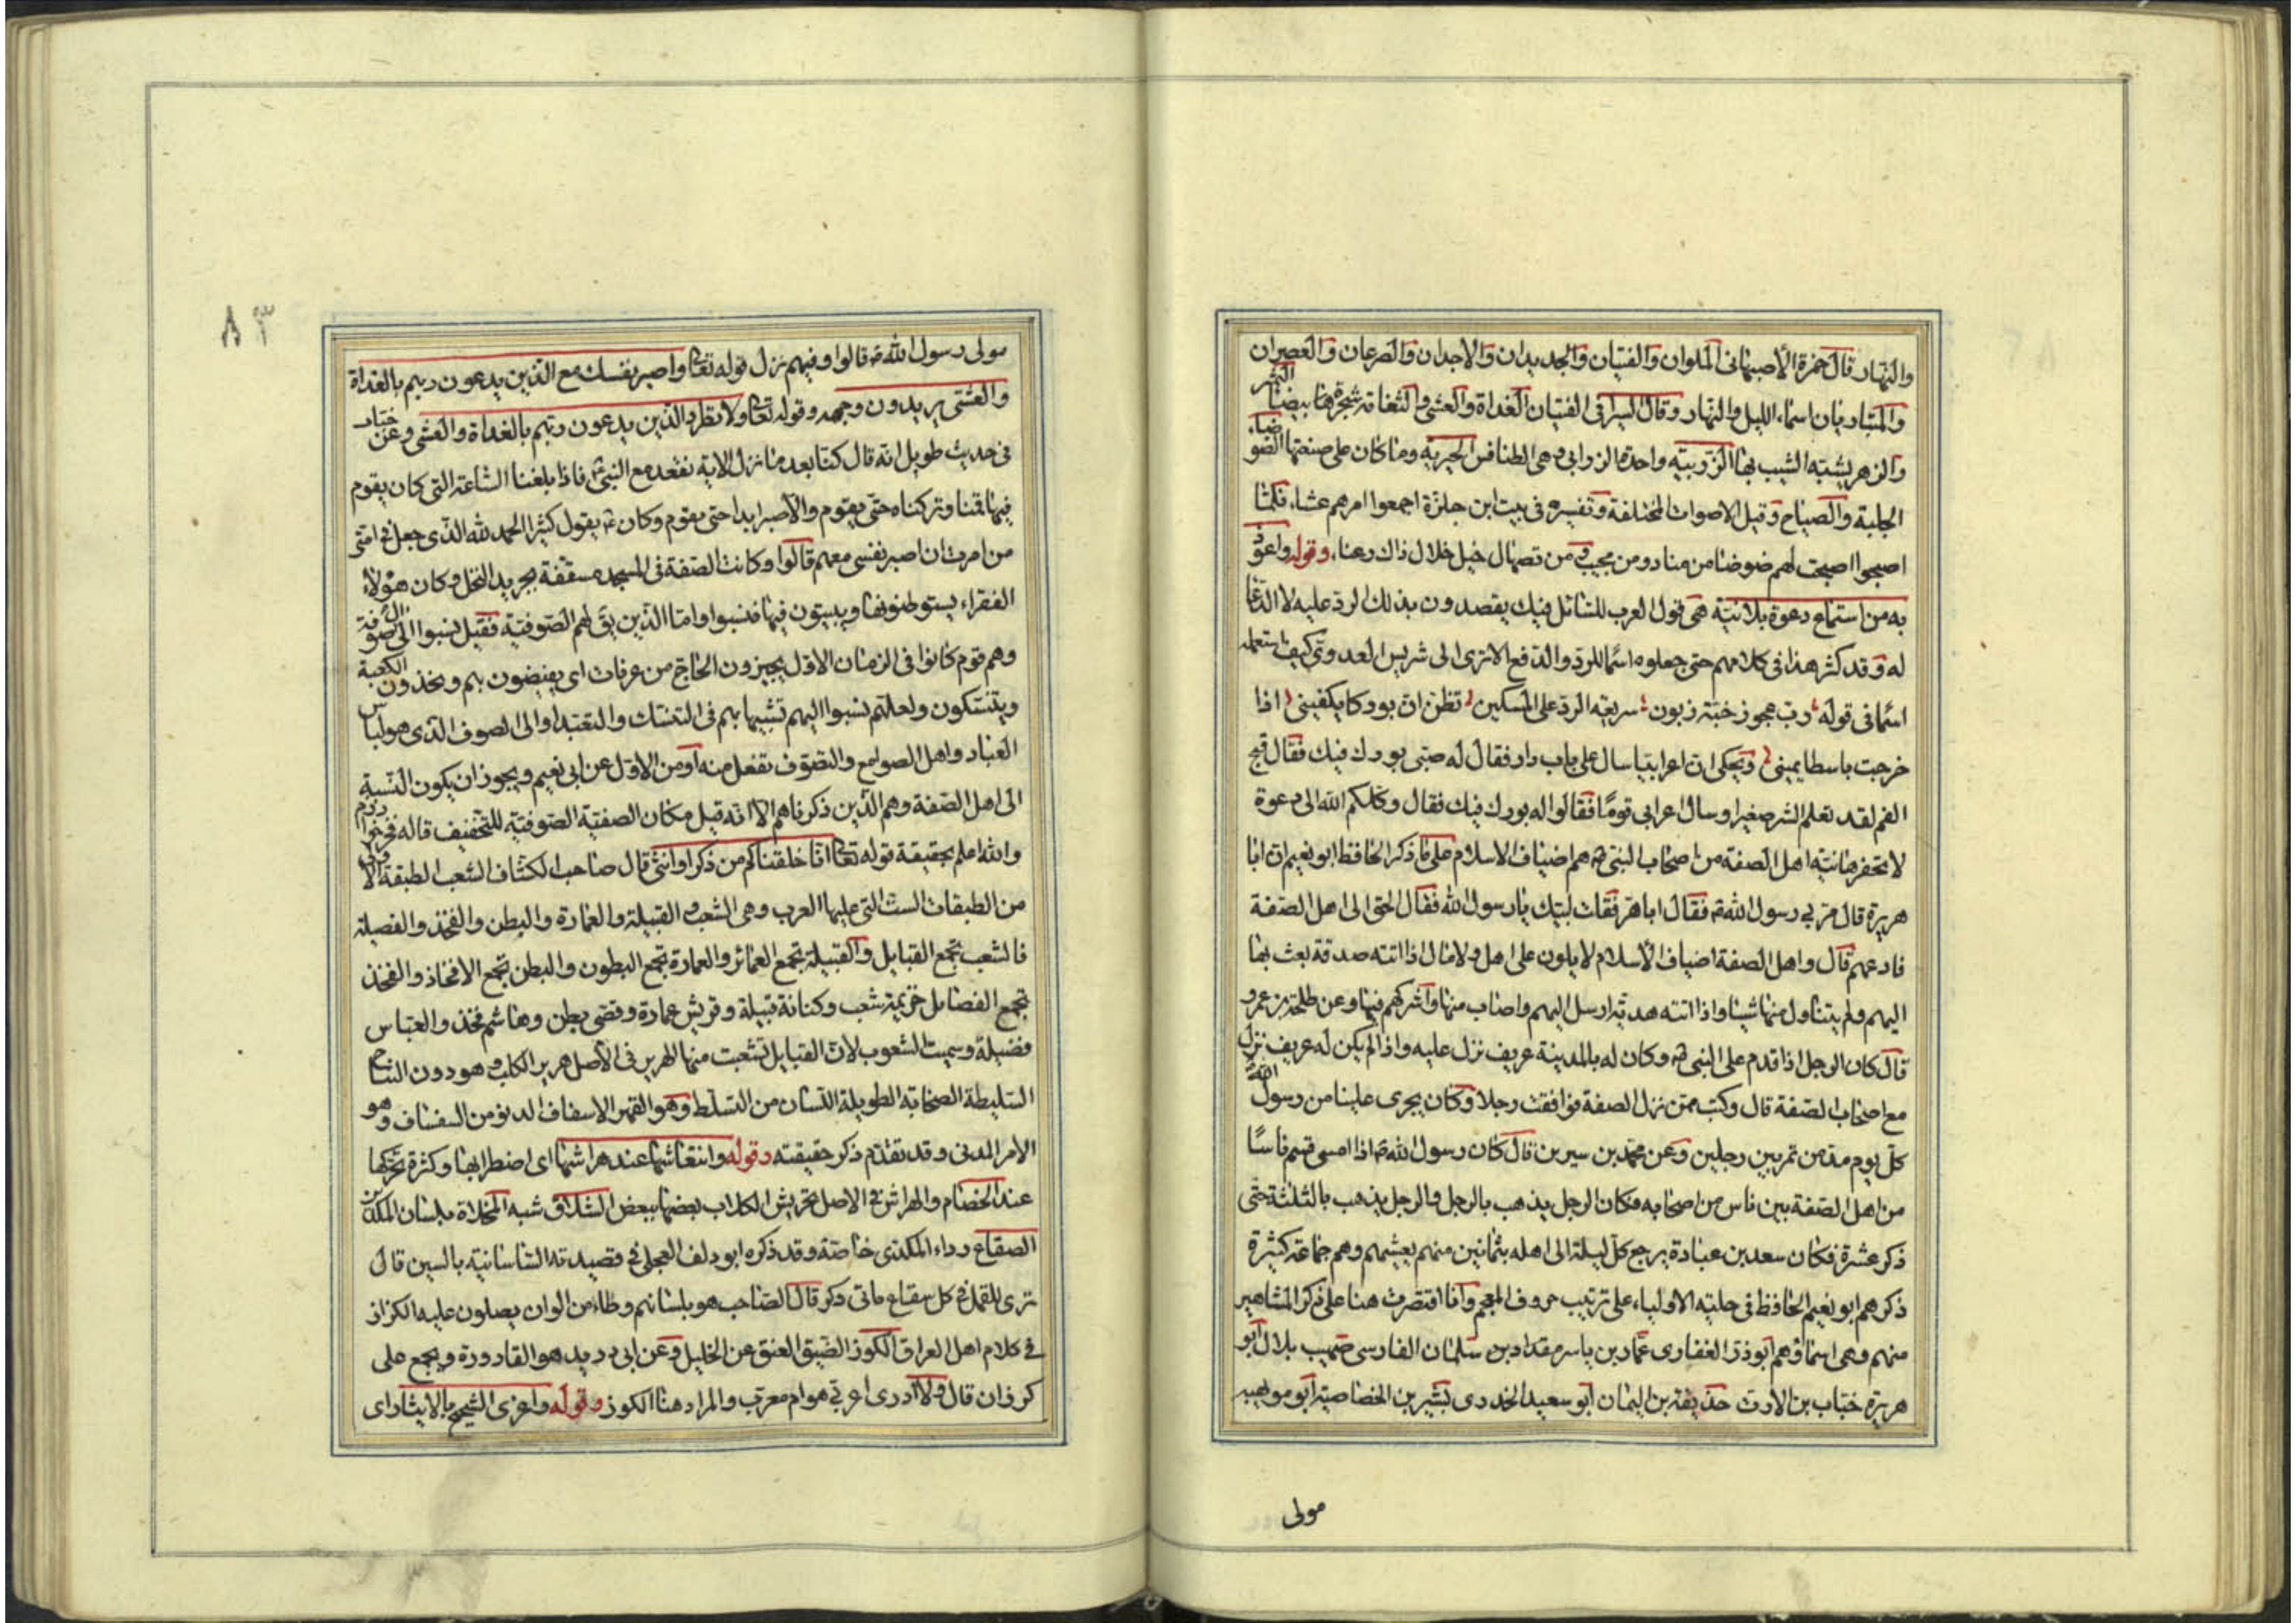 والنهار قال حمزة الأصبهاني الملوان والفتيان والجديدان والاجدان والصرعان والعصران
والمتباريان اسماء الليل والنهار وقال السيرافي الفتيان الغداة والعشي والثغامة شجرة لها بيضاء الثمر
والزهر يشبه الشيب بها الزربية واحدة الزرابي وهي الطنافس الحيرية وما كان على صنعتها الضوضاء
الجلبة والصياح وقيل الاصوات المختلفة وتفسيره في بيت ابن حلزة اجمعوا امرهم عشاء فلما
اصبحوا اصبحت لهم ضوضا من مناد ومن مجيب ومن تصهال خيل خلال ذاك رغاء وقوله واعوذ
به من استماع دعوة بلانية هي قول العرب للسائل فيك يقصدون بذلك الرد عليه لا الدعا
له وقد كثر هذا في كلامهم حتى جعلوه اسما للرد والدفع الا ترى الى كيف استعمله
اسما في قوله رب عجوز خبة زبون سريعة الرد على المسكين تظن ان بوركا يكفيني اذا
خرجت باسطا يميني ويحكى ان اعرابيا سال على باب دار فقال له صبي بورك فيك فقال قبح
الفم لقد تعلم الشر صغيرا وسال اعرابي قوما فقالوا له بورك فيك فقال وكلكم الله الى دعوة
لا تحضرها نية اهل الصفة من اصحاب النبي هم اضياف الاسلام على ما ذكر الحافظ ابو نعيم ان ابا
هريرة قال مر بي رسول الله فقال ابا هر فقلت لبيك يا رسول الله فقال الحق الى اهل الصفة
فادعهم قال واهل الصفة اضياف الأسلام لا يلون على اهل ولا مال اذا اتته صدقة بعث بها
اليهم ولم يتناول منها شيئا واذا اتته هدية ارسل اليهم واصاب منها واشركهم فيها وعن طلحة بن عمرو
قال كان الرجل اذا قدم على النبي وكان له بالمدينة عريف نزل عليه واذا لم يكن له عريف نزل
مع اصحاب الصفة قال وكنت ممن نزل الصفة فوافقت رجلا وكان يجرى علينا من رسول الله
كل يوم مد من تمر بين رجلين وعن محمد بن سيرين قال كان رسول الله اذا امسى قسم ناسا
من اهل الصفة بين ناس من اصحابه فكان الرجل يذهب بالرجل والرجل يذهب بالثلثة حتى
ذكر عشرة فكان سعد بن عبادة يرجع كل ليلة الى اهله بثمانين منهم يعشيهم وهم جماعة كثيرة
ذكرهم ابو نعيم الحافظ في حلية الاولياء على ترتيب حروف المعجم وانا اقتصرت هنا على ذكر المشاهير
منهم وهي اسماؤهم ابو ذر الغفاري عمار بن ياسر مقداد بن سلمان الفارسي صهيب بلال ابو
هريرة خباب بن الارت حذيفة بن اليمان ابو سعيد الخدري بشير بن الخصاصية ابو مويهبة
مولى
٨٣
مولى رسول الله قالوا وفيهم نزل قوله تعا واصبر نفسك مع الذين يدعون ربهم بالغداة
والعشي يريدون وجهه وقوله تعا ولا تطرد الذين يدعون ربهم بالغداة والعشي وعن خباب
في حديث طويل انه قال كنا بعد ما نزل الاية نقعد مع النبي فاذا بلغنا الساعة التي كان يقوم
فيها قمنا وتركناه حتى يقوم والا صبر ابدا حتى يقوم وكان يقول كثيرا الحمد لله الذي جعل في امتي
من امرت ان اصبر نفسي معهم قالوا وكانت الصفة في المسجد مسقفة بجريد النخل وكان هؤلاء
الفقراء يستوطنونها ويبيتون فيها فنسبوا واما الذين يق لهم الصوفية فقيل نسبوا الى صوفة
وهم قوم كانوا في الزمان الاول يجيزون الحاج من عرفات اي يفيضون بهم ويخدمون الكعبة
ويتنسكون ولعلهم نسبوا اليهم تشبيها بهم في التنسك والتعبد او الى الصوف الذي هو لباس
العباد واهل الصوامع والتصوف تفعل منه او من الاول عن ابي نعيم ويجوز ان يكون النسبة
الى اهل الصفة وهم الذين ذكرناهم الا انه قيل مكان الصفية الصوفية للتخفيف قاله
والله اعلم بحقيقة قوله تعا انا خلقناكم من ذكر وانثى قال صاحب الكشاف الشعب الطبقة الاولى
من الطبقات الست التي عليها العرب وهي الشعب والقبيلة والعمارة والبطن والفخذ والفصيلة
فالشعب تجمع القبايل والقبيلة تجمع العمائر والعمارة تجمع البطون والبطن تجمع الافخاذ والفخذ
تجمع الفصايل خزيمة شعب وكنانة قبيلة وقريش عمارة وقصي بطن وهاشم فخذ والعباس
فصيلة وسميت الشعوب لان القبايل تشعبت منها الهرير في الأصل هرير الكلب وهو دون النباح
السليطة الصخابة الطويلة اللسان من التسلط وهو القهر الاسفاف الدنو من السفساف وهو
الأمر الدني وقد تقدم ذكر حقيقته وقوله وانتعاشها عند هراشها اي اضطرابها وكثرة تحركها
عند الخصام والهراش في الاصل تحريش الكلاب بعضها ببعض الشلاق شبه المخلاة بلسان المكدين
الصقاع رداء المكدي خاصة وقد ذكره ابو دلف العجلي في قصيدته الساسانية بالسين قال
ترى للقمل في كل سقاع ماتى وكر قال الصاحب هو بلسانهم وطاء من الوان يصلون عليه الكراز
في كلام اهل العراق الكوز الضيق العنق عن الخليل وعن ابي دريد هو القارورة ويجمع على
كرزان قال ولا ادرى اعربي هو ام معرب والمراد هنا الكوز وقوله واغرى الشحيح بالايثار اي